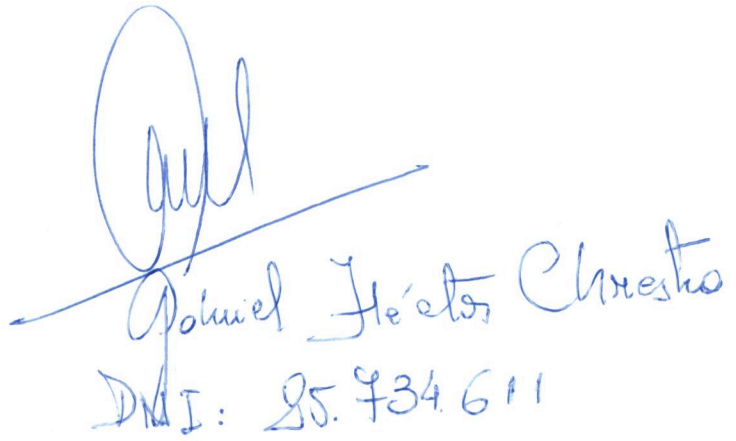 Gabriel Héctor Chrestia
DNI: 25.734.611